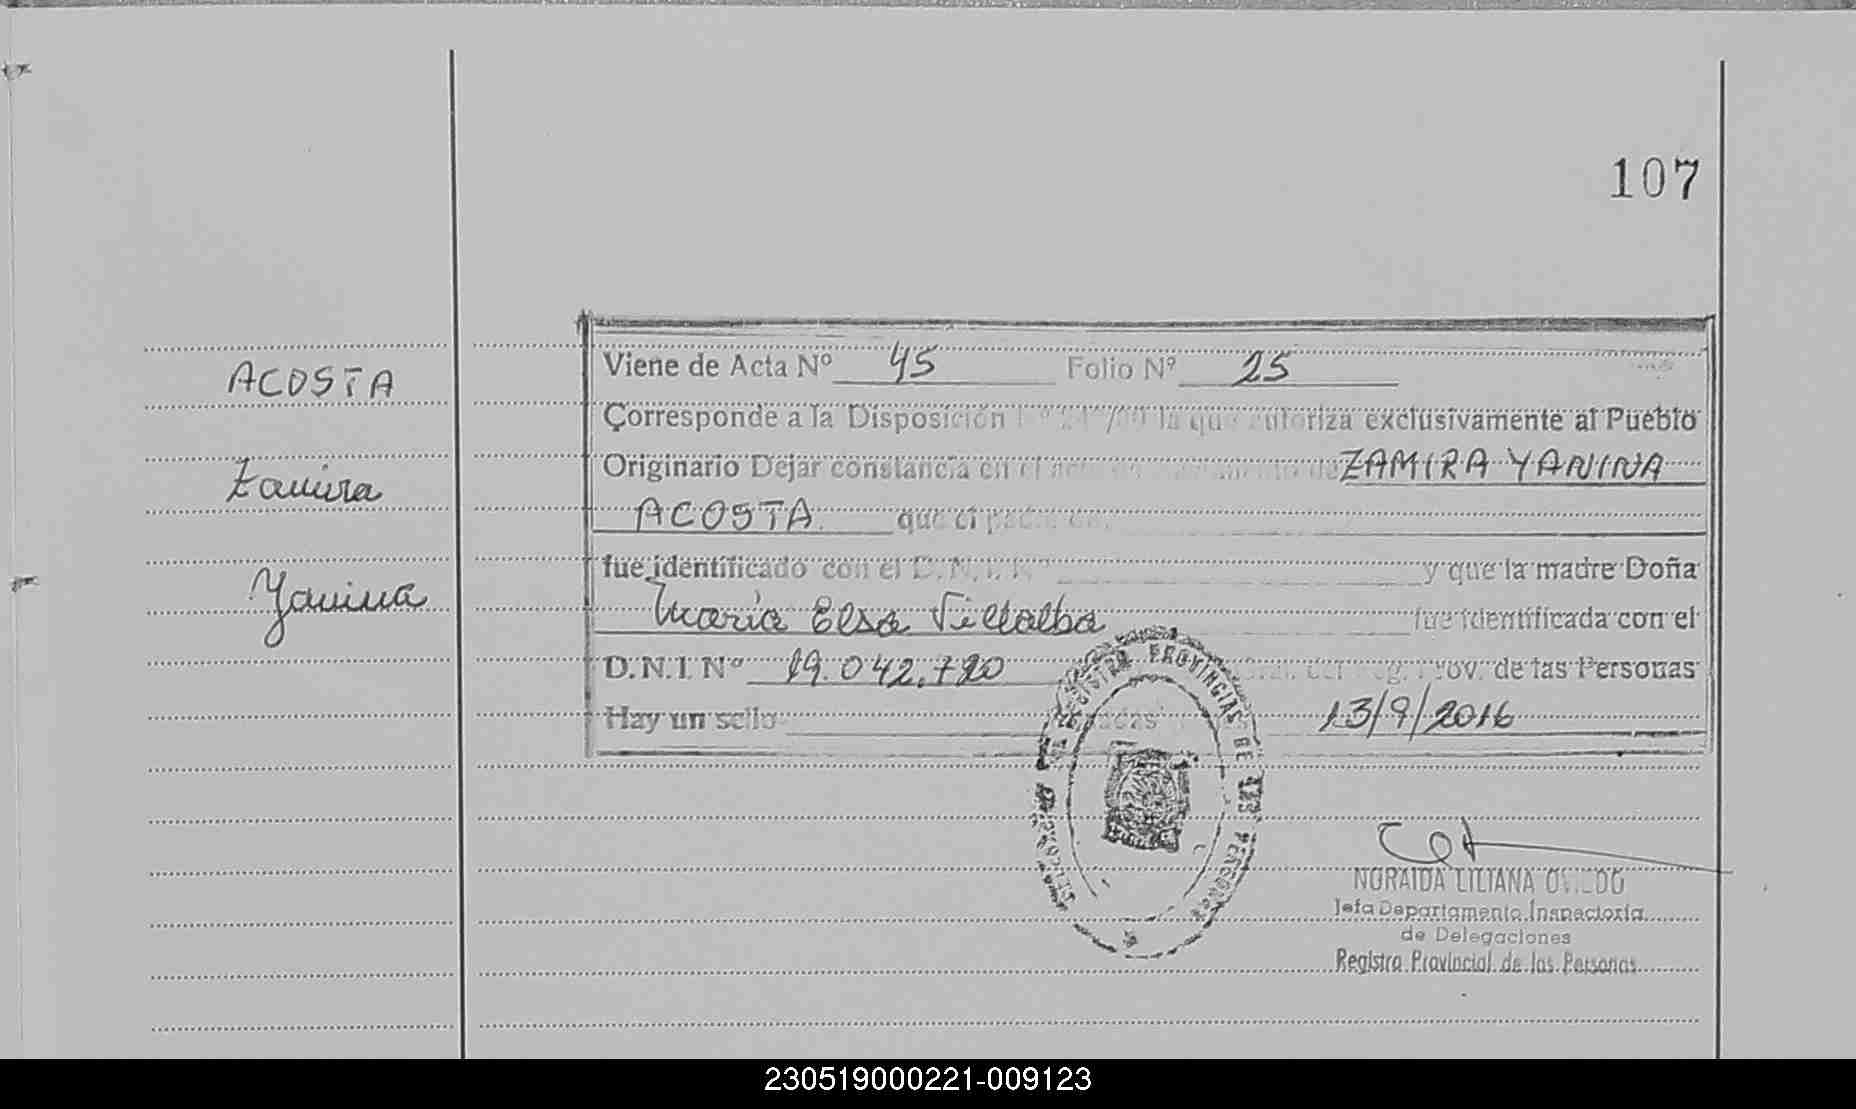 107
ACOSTA
Zamira
Yanina
Viene de Acta Nº 45 Folio Nº 25
Corresponde a la Disposición la que autoriza exclusivamente al Pueblo
Originario Dejar constancia en el ZAMIRA YANINA
ACOSTA que el padre
fue identificado con el D.N.I. Nº y que la madre Doña
María Elsa Villalba fue identificada con el
D.N.I. Nº Prov. de las Personas
Hay un sello 13/9/2016
REGISTRO PROVINCIAL DE LAS PERSONAS
NORAIDA LILIANA OVIEDO
Jefa Departamento Inspectoría
de Delegaciones
Registro Provincial de las Personas
230519000221-009123